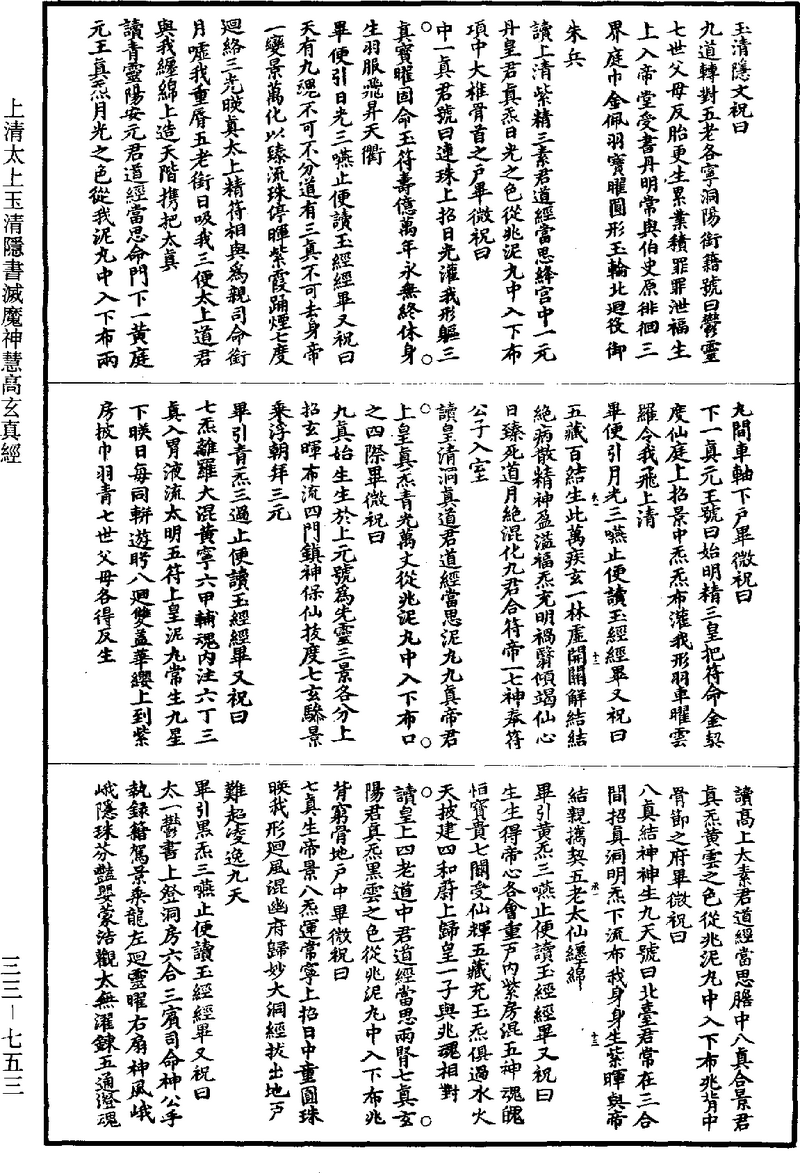 玉清隱文祝曰
九道轉對五老各寧洞陽銜籍號曰鬱靈
七世父母反胎更生累業積罪罪泄福生
上入帝堂受書丹明常與伯史原徘徊三
界庭巾金佩羽寶曜圓形玉輪北迴役御
朱兵
讀上清紫精三素君道經當思絳宮中一元
丹皇君真炁日光之色從兆泥丸中入下布
項中大椎骨首之戶畢微祝曰
中一真君號曰運珠上招日光灌我形軀三
真寶曜固命玉符壽億萬年永無終休身
生羽服飛昇天衢
畢便引日光三嚥止便讀玉經經畢又祝曰
天有九魂不可不分道有三真不可去身帝
一變景萬化以臻流珠停暉紫霞踊煙七度
迴絡三光映真太上精符相與爲親司命銜
月噓我重脣五老銜日吸我三便太上道君
與我纏綿上造天階携把太真
讀青靈陽安元君道經當思命門下一黃庭
元王真炁月光之色從我泥丸中入下布兩
九間車軸下戶畢微祝曰
下一真元王號曰始明精三皇把符命金契
度仙庭上招景中炁炁布灌我形羽車曜雲
羅令我飛上清
畢便引月光三嚥止便讀玉經經畢又祝曰
五藏百結生此萬疾玄一林虛開關解結結
絕病散精神盈溢福炁充明禍翳傾竭仙心
日臻死道月絕混化九君合符帝一七神奉符
公子入室
讀皇清洞真道君道經當思泥丸九真帝君
上皇真炁青光萬丈從兆泥丸中入下布口
之四際畢微祝曰
九真始生生於上元號爲先靈三景各分上
招玄暉布流四門鎮神保仙拔度七玄驂景
乘浮朝拜三元
畢引青炁三過止便讀玉經經畢又祝曰
七炁離羅大混黃寧六甲輔魂内注六丁三
真入胃液流太明五符上皇泥九常生九星
下映日每同輧遊眄八迴雙蓋華纓上到紫
房披巾羽青七世父母各得反生
讀高上太素君道經當思膽中八真合景君
真炁黃雲之色從兆泥丸中入下布兆背中
骨節之府畢微祝曰
八真結神神生九天號曰北臺君常在三合
間招真洞明炁下流布我身身生紫暉與帝
結親携契五老太仙纏綿
畢引黃炁三嚥止便讀玉經經畢又祝曰
生生得帝心各會重戶内紫房混五神魂魄
恒寶貴七關受仙輝五藏充玉炁俱過水火
天披建四和蔚上歸皇一子與兆魂相對
讀皇上四老道中君道經當思兩腎七真玄
陽君真炁黑雲之色從兆泥丸中入下布兆
背窮骨地戶中畢微祝曰
七真生帝景八炁運常寧上招日中童圓珠
映我形迴風混幽府歸妙大洞經拔出地戶
難超凌逸九天
畢引黑炁三嚥止便讀玉經經畢又祝曰
太一鬱書上登洞房六合三賓司命神公手
執錄籍駕景乘龍左迴靈曜右扇神風峨
峨隱珠芬豔嬰蒙浩觀太無濯鍊五通澄魂
上清太上玉清隱書滅魔神慧高玄真經
三三－七五三